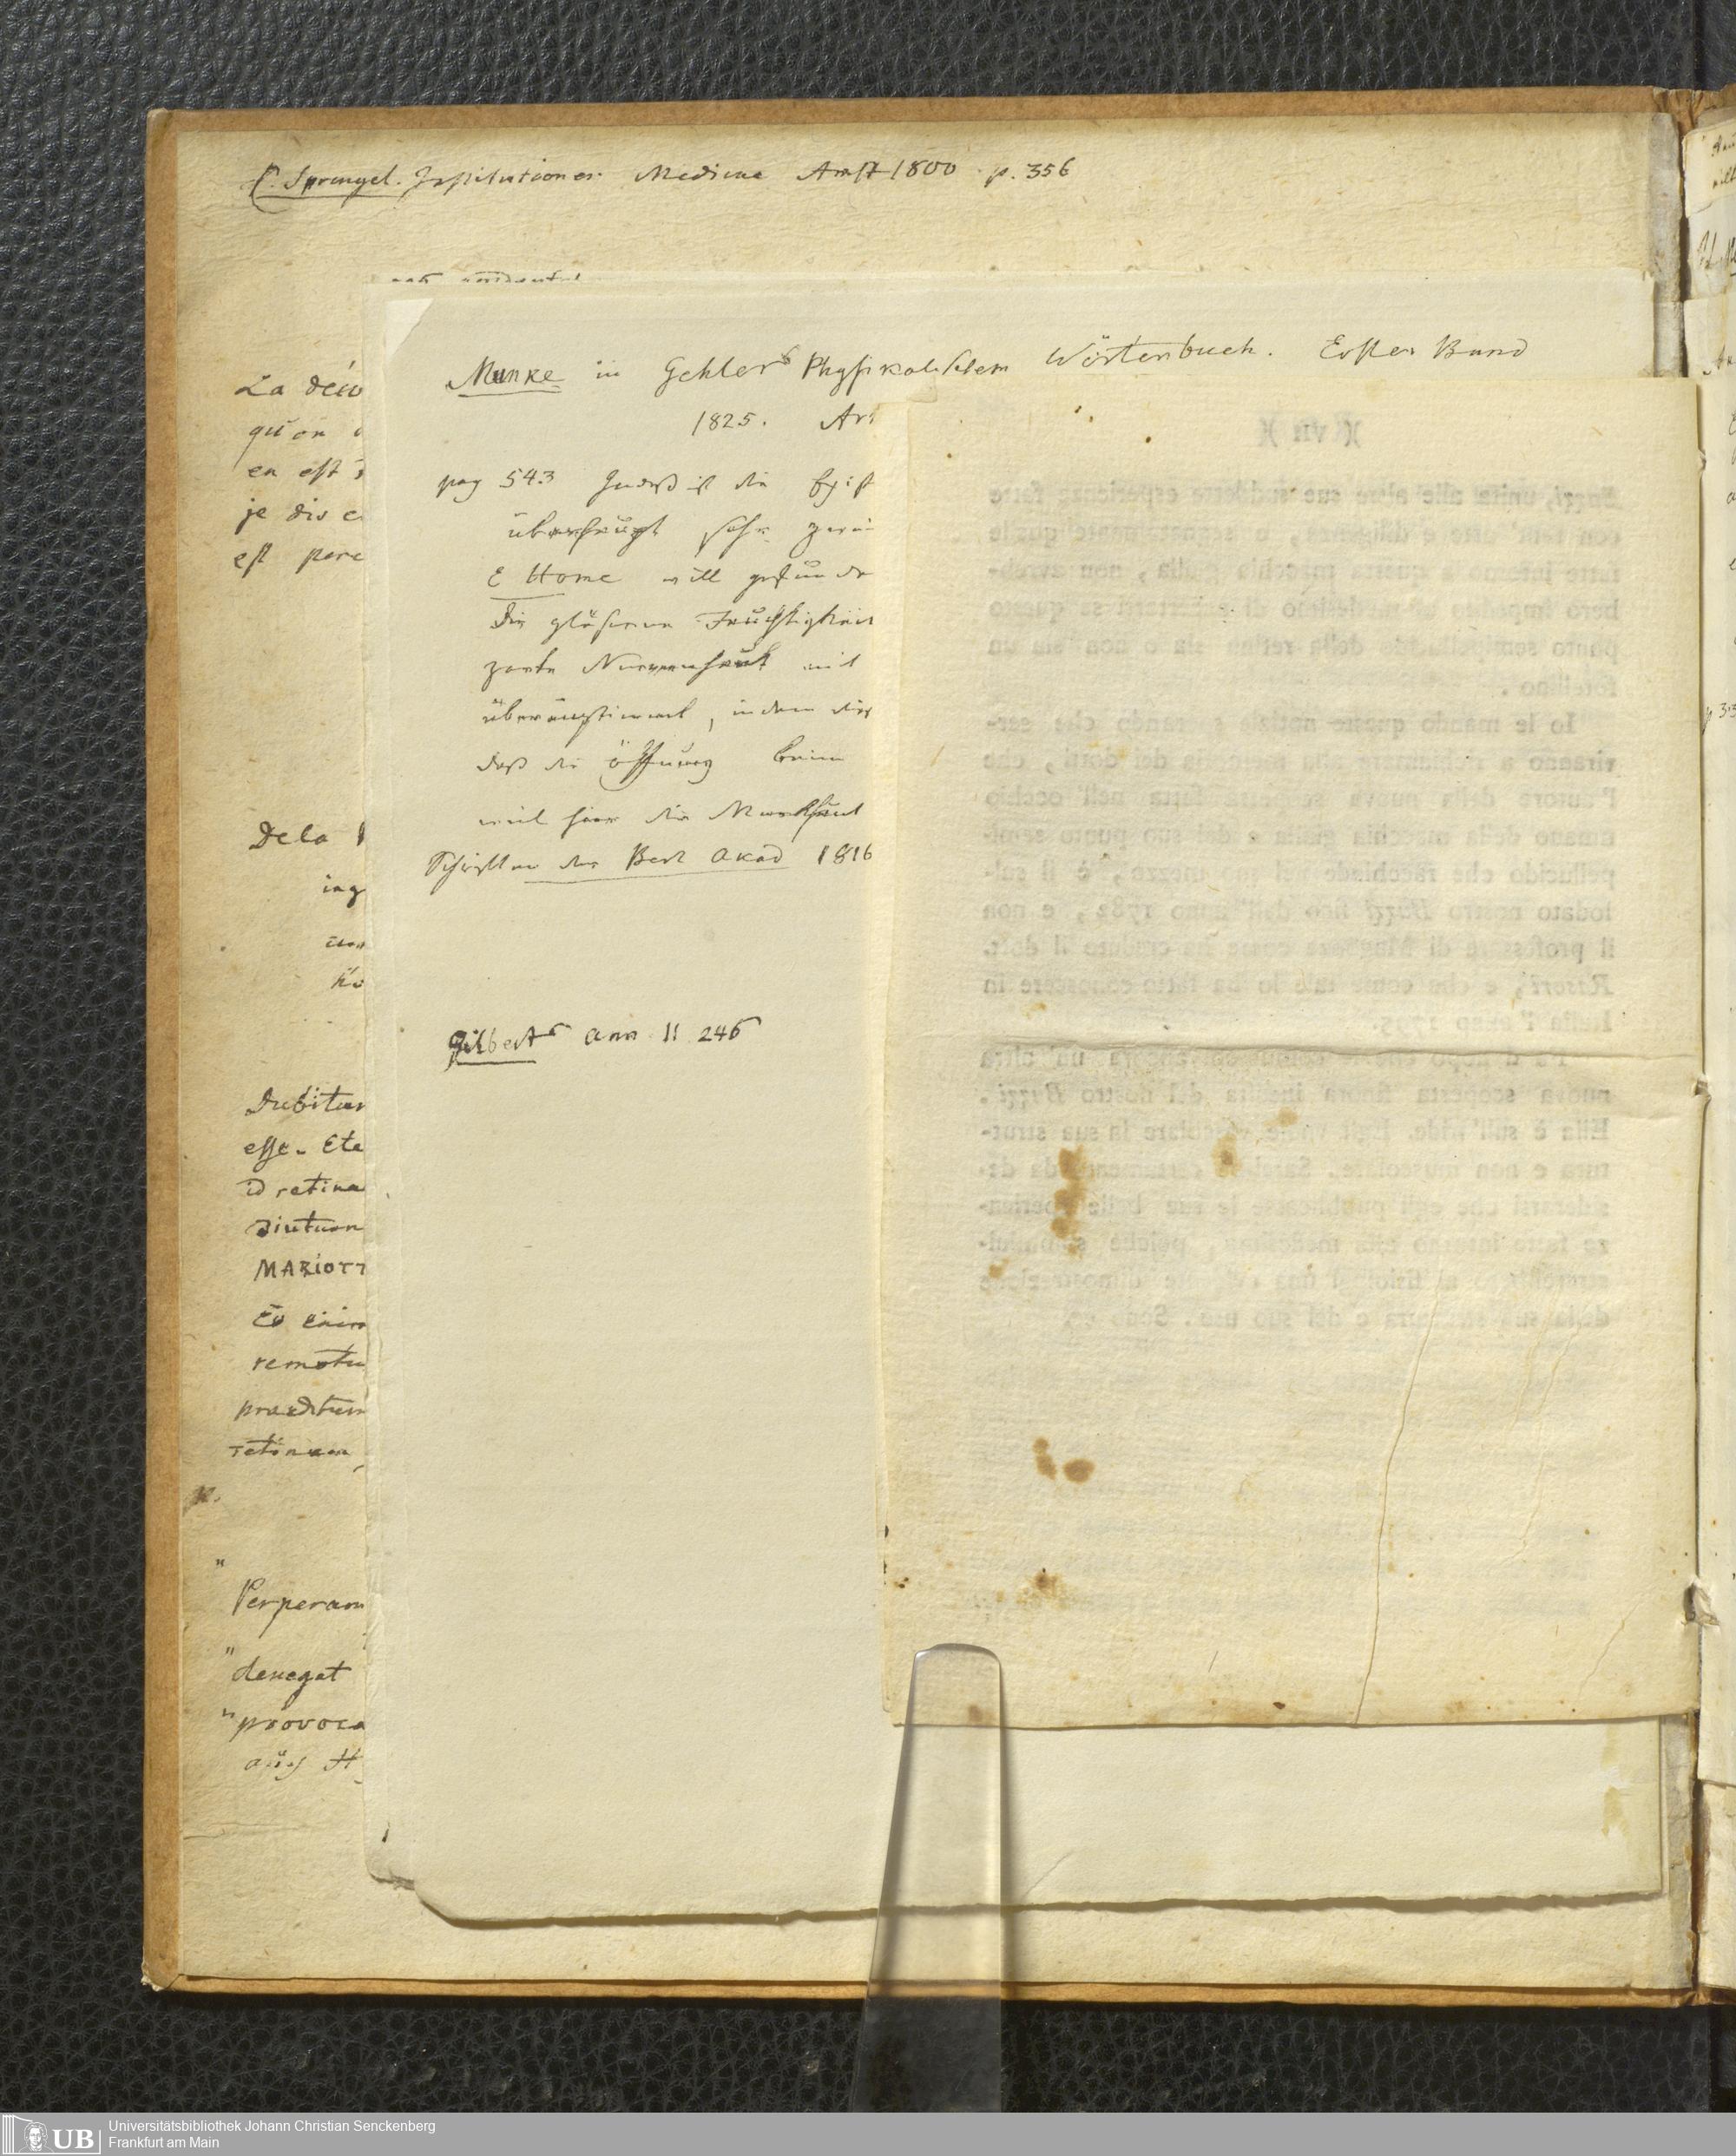 C. Sprengel. Institutiones Medicae Amst 1800 p. 356
La déco
qu'on
en est
je dis
est perc
De la
ing
Dubitar
esse. Ete
id retina
MARIOTT
Eo enim
remotu
praeditum
retinam,
p.
"
Perperam
"denegat
"provoca
aus H
Munke in Gehlers Physikalischem Wörterbuch. Erster Band
1825. Art
pag 543 Indeß ist die Exist
überhaupt sehr
E Home will gefunde
die gläserne Feuchtigkeit
zarte Nervenhaut mit
übereinstimmt, indem dies
daß die Öffnung beim
weil hier die Markhaut
Schriften der Berl Akad 1816
Gilberts Ann II 246
)( VII )(
Buzzi, unita alle altre sue suddette esperienze fatte
con tant' arte e diligenza, e segnatamente quelle
fatte intorno a questa macchia gialla, non avreb-
bero impedito al medesimo di accertarsi se questo
punto semipellucido della retina sia o non sia un
forellino.
Io le mando queste notizie sperando che ser-
viranno a richiamare alla memoria dei dotti, che
l'autore della nuova scoperta fatta nell'occhio
umano della macchia gialla e del suo punto semi-
pellucido che racchiude nel suo mezzo, è il sul-
lodato nostro Buzzi fino dall'anno 1782, e non
il professore di Magonza come ha creduto il dott.
Rasori, e che come tale lo ha fatto conoscere in
Italia l'anno 1795.
nuova scoperta finora inedita del nostro Buzzi.
Ella è sull'iride. Egli vuole vascolare la sua strut-
tura e non muscolare. Sarebbe certamente da de-
siderarsi che egli pubblicasse le sue belle sperien-
ze fatte intorno alla medesima, poichè
della sua struttura e del suo uso. Sono ec.
Universitätsbibliothek Johann Christian Senckenberg
Frankfurt am Main
UB